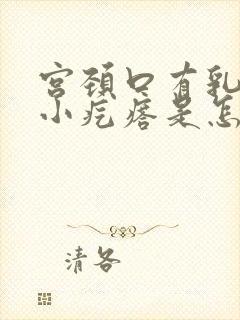 宫颈口有乳
小疙瘩是怎
清咎